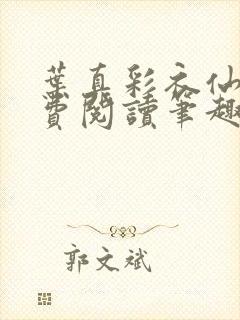 葉真彩衣仙
費閱讀筆趣
郭文斌